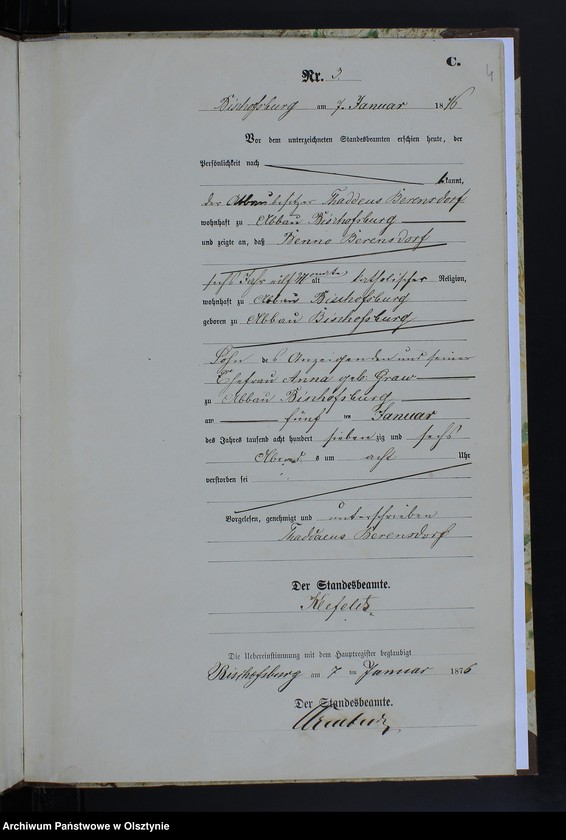 C.
4
Nr. 3.
Bischofsburg am 7. Januar 1876
Vor dem unterzeichneten Standesbeamten erschien heute, der
Persönlichkeit nach
kannt,
der Abbaubesitzer Thaddeus Berensdorf
wohnhaft zu Abbau Bischofsburg
und zeigte an, daß Benno Berensdorf
sechs Jahr eilf Monate alt katholischer Religion,
wohnhaft zu Abbau Bischofsburg
geboren zu Abbau Bischofsburg
Sohn des Anzeigenden und seiner
Ehefrau Anna geb. Graw
zu Abbau Bischofsburg
am fünf ten Januar
des Jahres tausend acht hundert sieben zig und sechs
Abends um acht Uhr
verstorben sei
Vorgelesen, genehmigt und unterschrieben
Thaddaeus Berensdorf
Der Standesbeamte.
Die Uebereinstimmung mit dem Hauptregister beglaubigt
Bischofsburg am 7 ten Januar 1876
Der Standesbeamte.
Archiwum Państwowe w Olsztynie